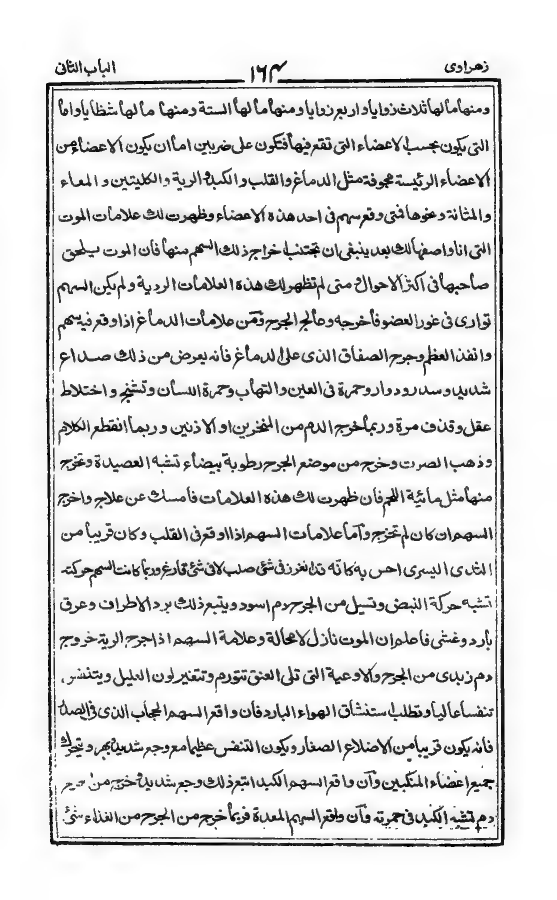 زهراوى
١٦٣
الباب الثانى
ومنها ما لها ثلاث زوايا واربع زوايا ومنها ما لها الستة ومنها ما لها شظايا واما
التى يكون بحسب الاعضاء التى تقع فيها فتكون على ضربين اما ان يكون الاعضاء من
الاعضاء الرئيسة مجوفة مثل الدماغ والقلب والكبد والرية والكليتين و المعاء
والمثانة ونحوها فمتى وقع سهم فى احد هذه الاعضاء وظهرت لك علامات الموت
التى انا واصفها لك بعد ينبغى ان تجتنب اخراج ذلك السهم منها فان الموت يلحق
صاحبها فى اكثر الاحوال و متى لم تظهر لك هذه العلامات الردية و لم يكن السهم
توارى فى غور العضو فأخرجه وعالج الجرح فمن علامات الدماغ اذا وقع فيه سهم
وانفذ العظم وجرح الصفاق الذى على الدماغ فانه يعرض من ذلك صداع
شديد وسدر ودوار وحمرة فى العين والتهاب وحمرة اللسان وتشنج و اختلاط
عقل وقذف مرة وربما خرج الدم من المنخرين او الاذنين وربما انقطع الكلام
و ذهب الصرت وخرج من موضع الجرح رطوبة بيضاء تشبه العصيدة وتخرج
منها مثل مائية اللحم فان ظهرت لك هذه العلامات فامسك عن علاج واخرج
السهم ان كان لم تخرج وأما علامات السهم اذا اوقع فى القلب و كان قريبا من
الثدى اليسرى احس به كانه قد انغرز فى شئ صلب لا فى شئ فارغ وربما كانت السهم حركته
تشبه حركة النبض وتسيل من الجرح دم اسود ويتبع ذلك برد الاطراف وعرق
بارد وغشى فاعلم ان الموت نازل لا محالة وعلامة السهم اذا جرح الرية خروج
دم زبدى من الجرح والاوعية التى تلى العنق تتورم وتتغير لون العليل ويتنفس
تنفسا عاليا وتطلب استنشاق الهواء البارد فان واقع السهم الحجاب الذى فى الصدر
فانه يكون قريبا من الاضلاع الصغار ويكون التنفس عظيما مع وجع شديد بهر و يتحرك
جميع اعضاء المنكبين وأن واقع السهم الكبد اتبع ذلك وجع شديد وخرج من
دم تشبه الكبد فى حمرته وأن واقع السهم المعدة فربما خرج من الجرح من الغذاء شئ